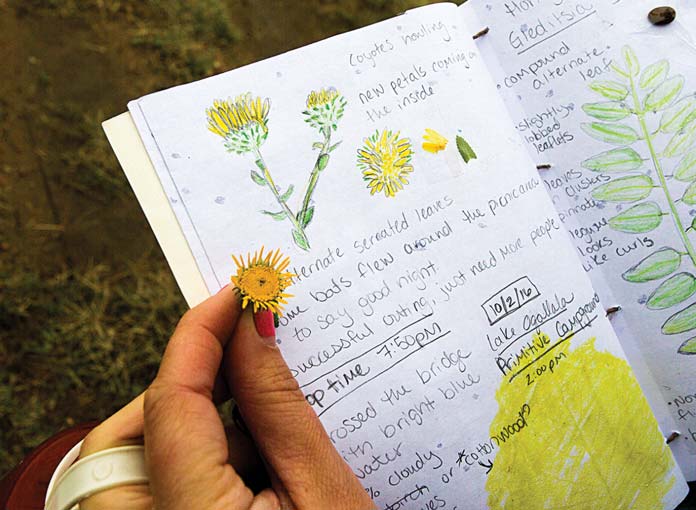 Coyotes howling
new petals coming on
the inside
alternate serrated leaves
some bats flew around the picnic area
to say good night.
successful outing, just need more people
stop time 7:50pm
crossed the bridge
with bright blue
water
% cloudy
birch or *cottonwood?
leaves
10/2/16
Lake Ogallala
Primitive Campground
2:00 pm
Gleditsia
compound
alternate
leaf
slightly
lobbed
leaflets
leaves
clusters
pinnate
legume
looks
like curls